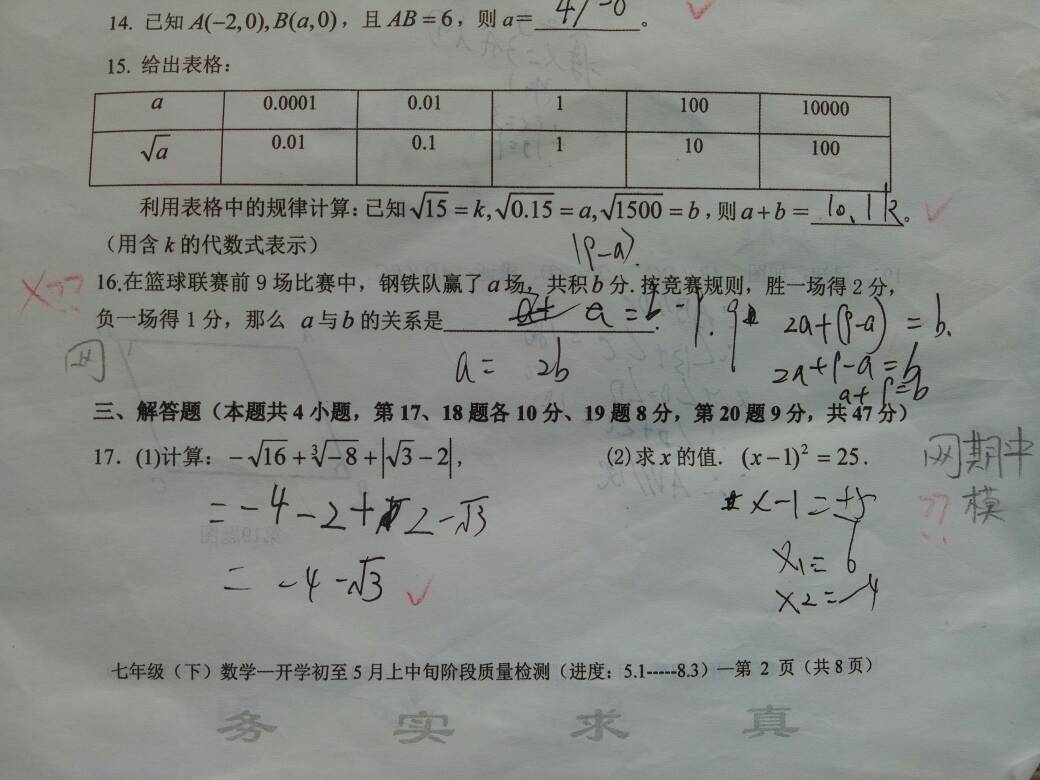 14. 已知 A(−2,0), B(a,0)，且 AB = 6，则 a= 4/-8 。
15. 给出表格：
a 0.0001 0.01 1 100 10000
√a 0.01 0.1 1 10 100
利用表格中的规律计算：已知 √15 = k, √0.15 = a, √1500 = b，则 a + b = 10.1k。
（用含 k 的代数式表示）
(9-a)
16.在篮球联赛前 9 场比赛中，钢铁队赢了 a 场，共积 b 分. 按竞赛规则，胜一场得 2 分，
负一场得 1 分，那么 a 与 b 的关系是 a = b - 9.
2a+(9-a) = b.
a = 2b
2a+9-a=b
a+9=b
三、解答题（本题共 4 小题，第 17、18 题各 10 分、19 题 8 分，第 20 题 9 分，共 47 分）
17. (1)计算：−√16 + ∛−8 + |√3 − 2|， (2)求 x 的值. (x−1)² = 25.
网期中
模
??
= -4 -2 + 2 -√3
= -4 -√3
x-1=±5
x1= 6
x2=-4
七年级（下）数学—开学初至 5 月上中旬阶段质量检测（进度：5.1-----8.3）—第 2 页（共 8 页）
务 实 求 真